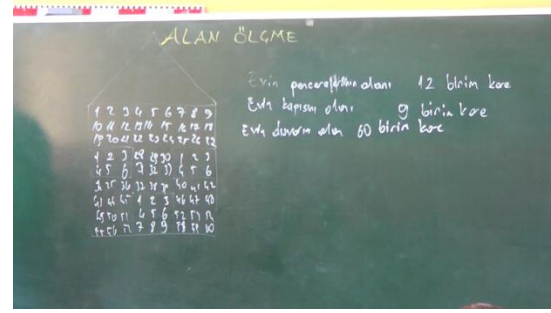 ALAN ÖLÇME
Evin pencerelerinin alanı 12 birim kare
Evin kapısının alanı 9 birim kare
Evin duvarın alanı 60 birim kare
1 2 3 4 5 6 7 8 9
10 11 12 13 14 15 16 17 18
19 20 21 22 23 24 25 26 27
1 2 3 28 29 30 1 2 3
4 5 6 7 32 33 4 5 6
35 36 37 38 39 40 41 42
43 44 45 1 2 3 46 47 48
49 50 51 4 5 6 52 53 54
55 56 57 7 8 9 58 59 60